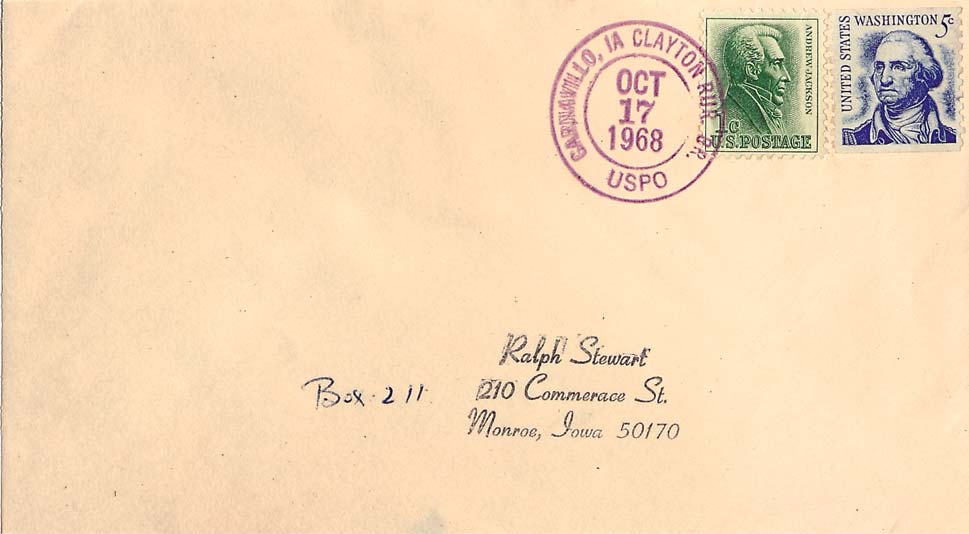 GARNAVILLO, IA CLAYTON RUR. BR.
OCT
17
1968
USPO
ANDREW JACKSON
1c
U.S. POSTAGE
UNITED STATES
WASHINGTON 5c
Ralph Stewart
210 Commerace St.
Monroe, Iowa 50170
Box 211